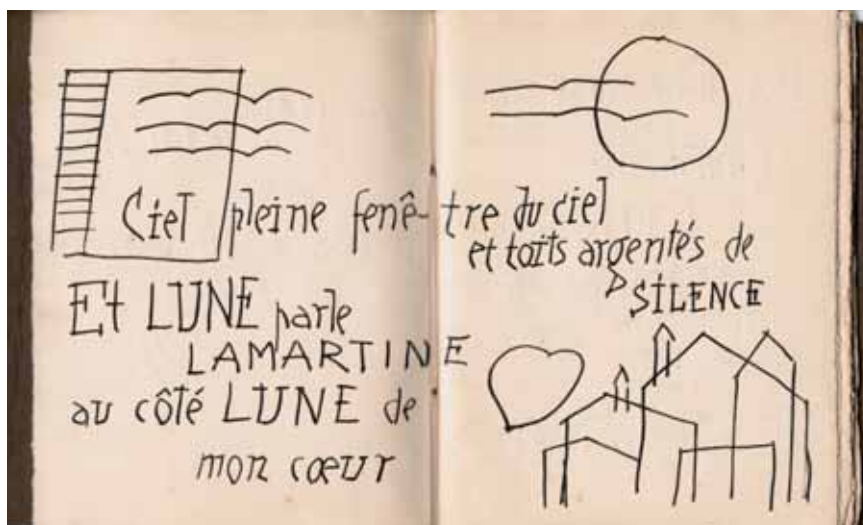 Ciel pleine fenê-tre du ciel
et toits argentés de
SILENCE
Et LUNE parle
LAMARTINE
au côté LUNE de
mon cœur